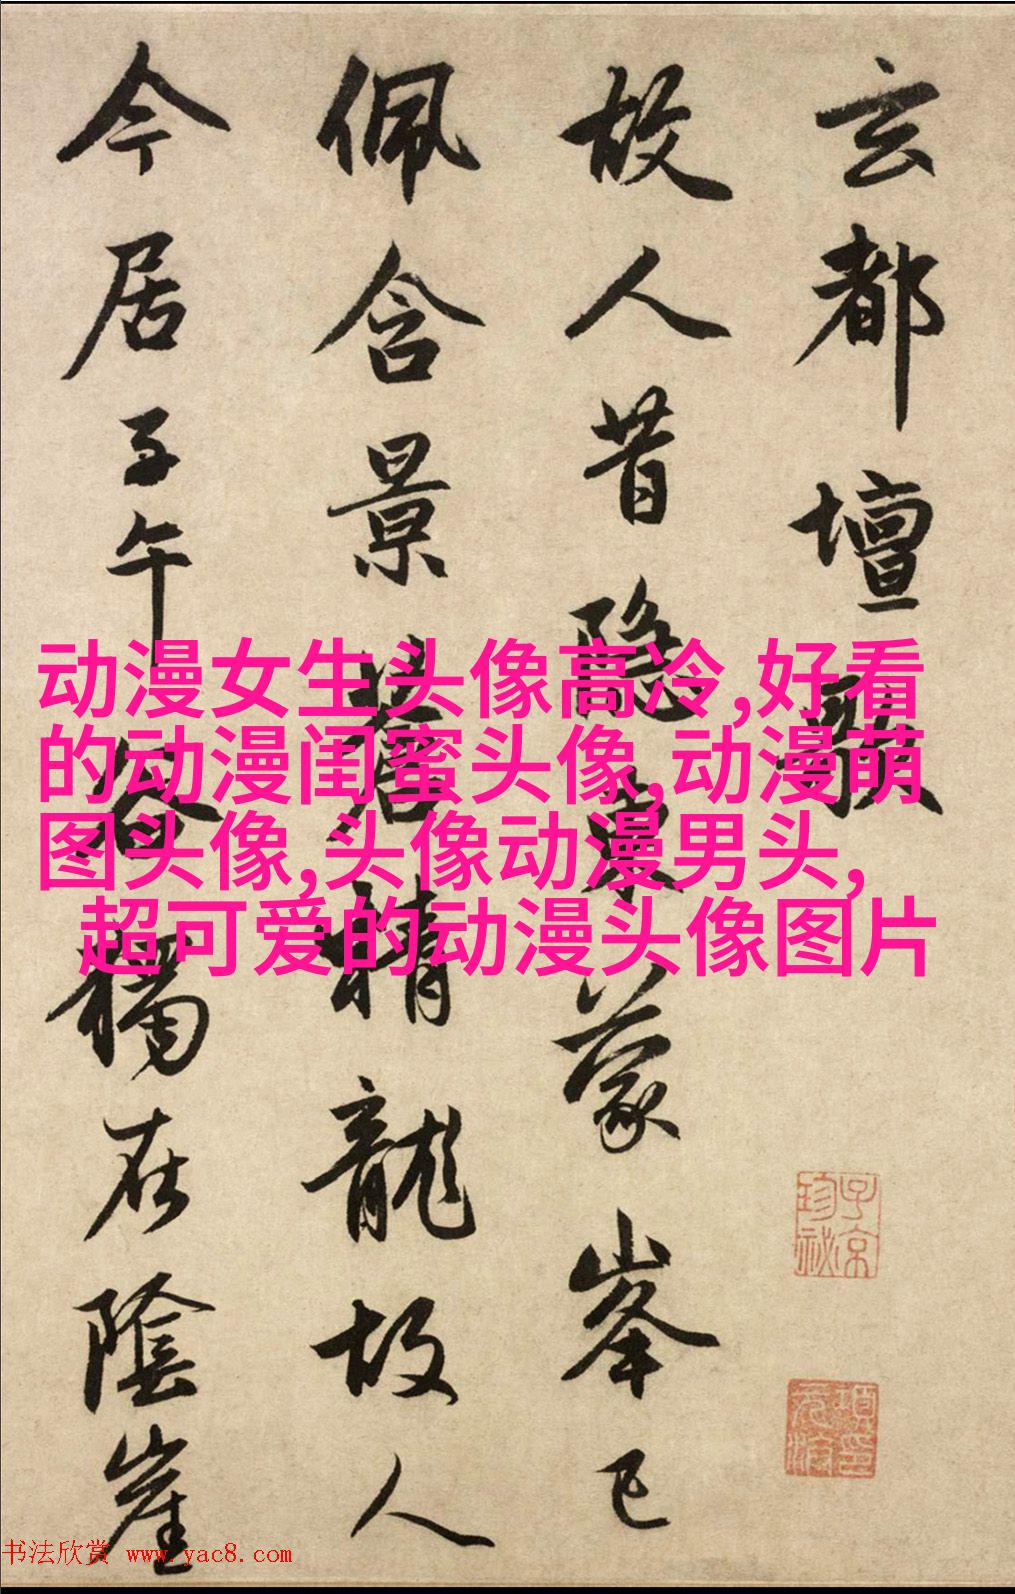 玄都壇歌
故人昔隐東蒙峯已
佩含景蒼精龍故人
今居子午谷獨在陰崖
动漫女生头像高冷,好看
的动漫闺蜜头像,动漫萌
图头像,头像动漫男头,
超可爱的动漫头像图片
子京
珍祕
项元汴印
书法欣赏 www.yac8.com